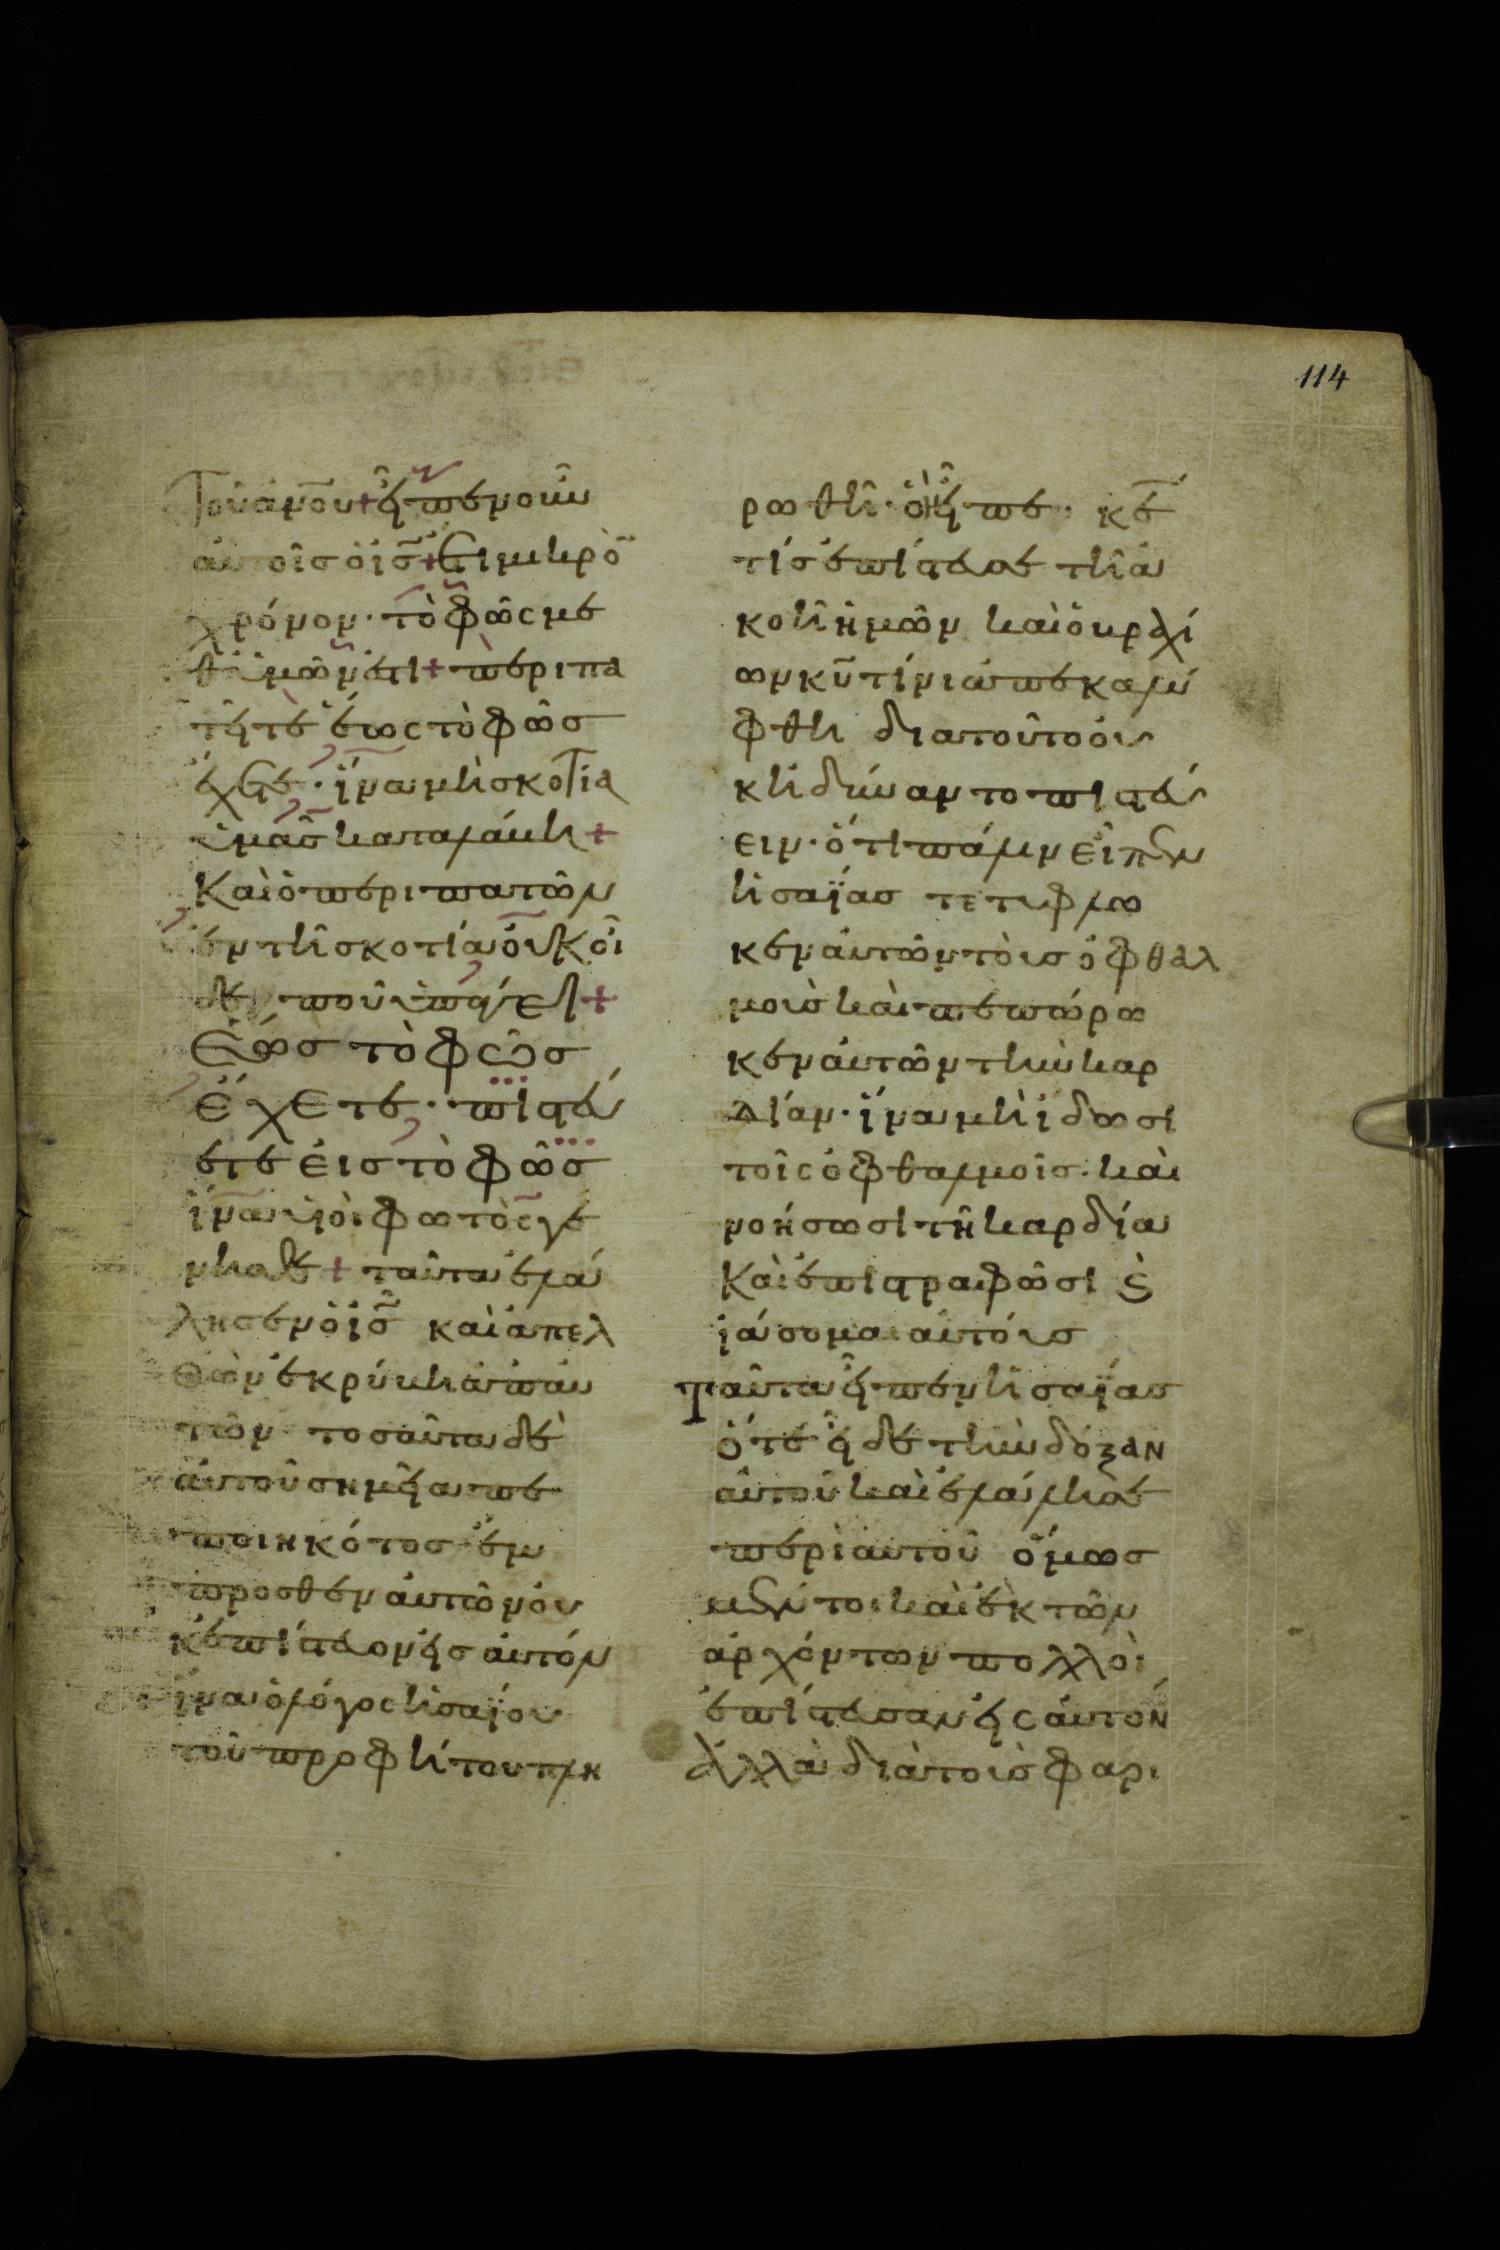 114
του ἀν̅ου + εἶπεν οὖν
αὐτοῖσ ὁ ἰσ̅ + ἔτι μικρὸ̅
χρόνον · τὸ φῶς με
θ ὑμῶν ἐστι + περιπα
τεῖτε ἕως τὸ φῶσ
ἔχετε · ἵνα μὴ σκοτία
ὑμᾶσ καταλάβη +
Καὶ ὁ περιπατῶν
ἐν τῆ σκοτία οὐκ οἶ
δε ποῦ ὑπάγει +
Ἕωσ τὸ φῶσ
ἔχετε · πιστεύ
ετε εἰσ τὸ φῶσ
ἵνα υἱοὶ φωτὸς γέ
νησθε + ταῦτα ἐλά
λησεν ὁ ἰσ̅ καὶ ἀπελ
θὼν ἐκρύβη ἀπ αυ
τῶν τοσαῦτα δὲ
αὐτοῦ σημεῖα πε
ποιηκότοσ ἔμ
προσθεν αὐτῶν οὐ
κ ἐπίστευον εἰσ αὐτόν
ἵνα ὁ λόγος ἡσαΐου
τοῦ προφήτου πλη
ρωθῆ · ὃν εἶπε · κε̅
τίσ ἐπίστευσε τῆ ἀ
κοῆ ἡμῶν καὶ ὁ βραχί
ων κυ̅ τίνι ἀπεκαλύ
φθη διατοῦτο οὐ
κ ἠδύναντο πιστεύ
ειν · ὅτι πάλιν εἶπεν
ἡσαΐασ τετυφλω
κεν αὐτῶν τοὺσ ὀφθαλ
μοὺσ καὶ πεπώρω
κεν αὐτῶν τὴν καρ
δίαν · ἵνα μὴ ἴδωσι
τοῖς ὀφθαλμοῖσ · καὶ
νοήσωσι τῆ καρδία
Καὶ ἐπιστραφῶσι ϗ̀
ἰάσομαι αὐτούσ
Ταῦτα εἶπεν ἡσαΐασ
ὅτε εἶδε τὴν δόξαν
αὐτοῦ καὶ ἐλάλησε
περὶ αὐτοῦ ὅμωσ
μέντοι καὶ ἐκ τῶν
ἀρχόντων πολλοὶ
ἐπίστευσαν εἰς αὐτόν
Ἀλλὰ διὰ τοὺσ φαρι